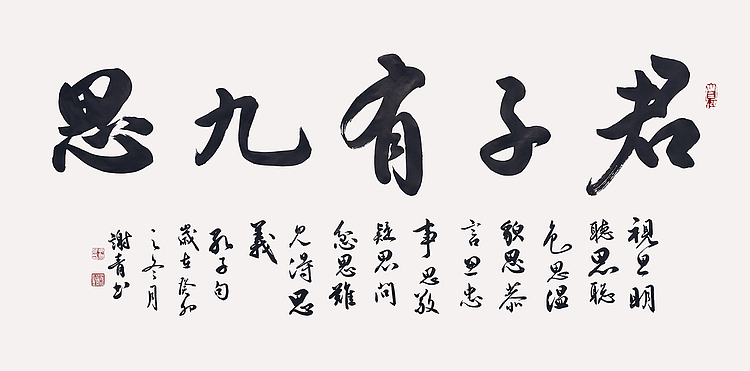 君子有九思
視思明
聽思聰
色思溫
貌思恭
言思忠
事思敬
疑思問
忿思難
見得思
義
孔子句
歲在癸卯
之冬月
謝青書